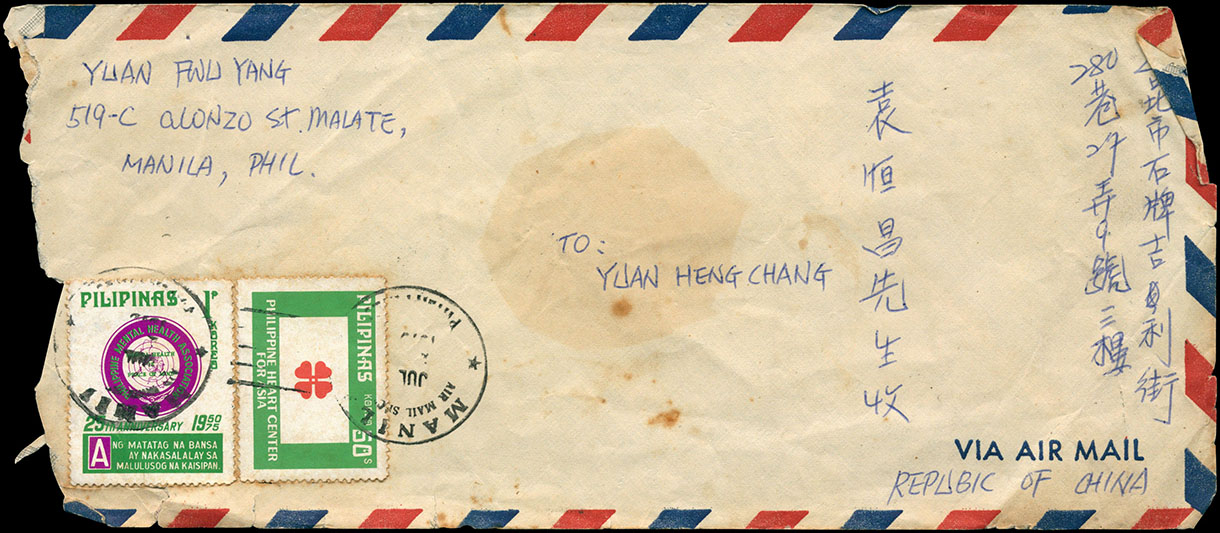 YUAN FWU YANG
519-C ALONZO St. MALATE,
MANILA, PHIL.
北市石牌吉利街
280巷27弄9號三樓
袁恒昌先生收
TO:
YUAN HENG CHANG
PILIPINAS 1P
KOREO
PHILIPPINE MENTAL HEALTH ASSOCIATION
25TH ANNIVERSARY 1950 75
ANG MATATAG NA BANSA
AY NAKASALALAY SA
MALULUSOG NA KAISIPAN.
PILIPINAS
50s
PHILIPPINE HEART CENTER
FOR ASIA
JUL
AIR MAIL
VIA AIR MAIL
REPUBIC OF CHINA